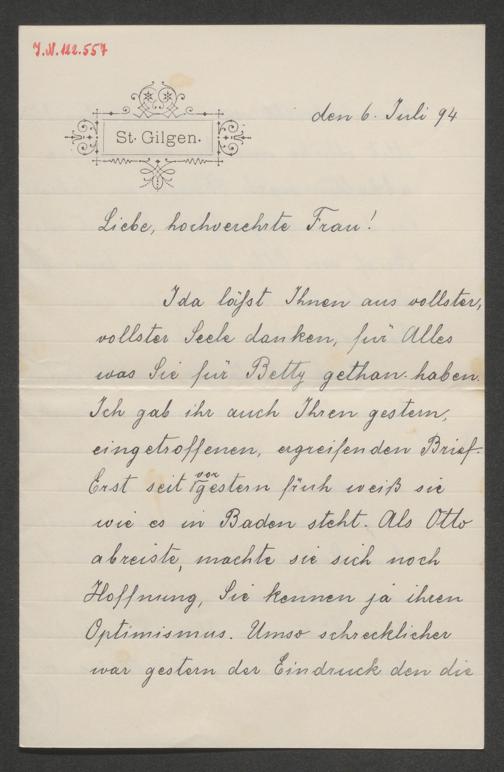 J.N. 122.557
den 6. Juli 94
St. Gilgen.
Liebe, hochverehrte Frau!
Ida läßt Ihnen aus vollster,
vollster Seele danken, für Alles
was Sie für Betty gethan haben.
Ich gab ihr auch Ihren gestern,
eingetroffenen, ergreifenden Brief.
Erst seit vorgestern früh weiß sie
wie es in Baden steht. Als Otto
abreiste, machte sie sich noch
Hoffnung, Sie kennen ja ihren
Optimismus. Umso schrecklicher
war gestern der Eindruck den die